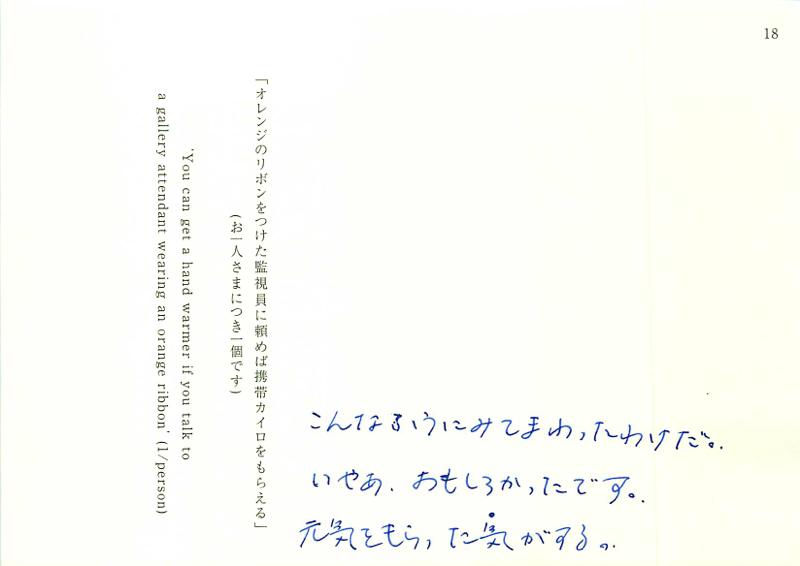 18
「オレンジのリボンをつけた監視員に頼めば携帯カイロをもらえる」
(お一人さまにつき一個です)
'You can get a hand warmer if you talk to
a gallery attendant wearing an orange ribbon' (1/person)
こんなふうにみてまわったわけだ。
いやあ、おもしろかったです。
元気をもらった気がする。